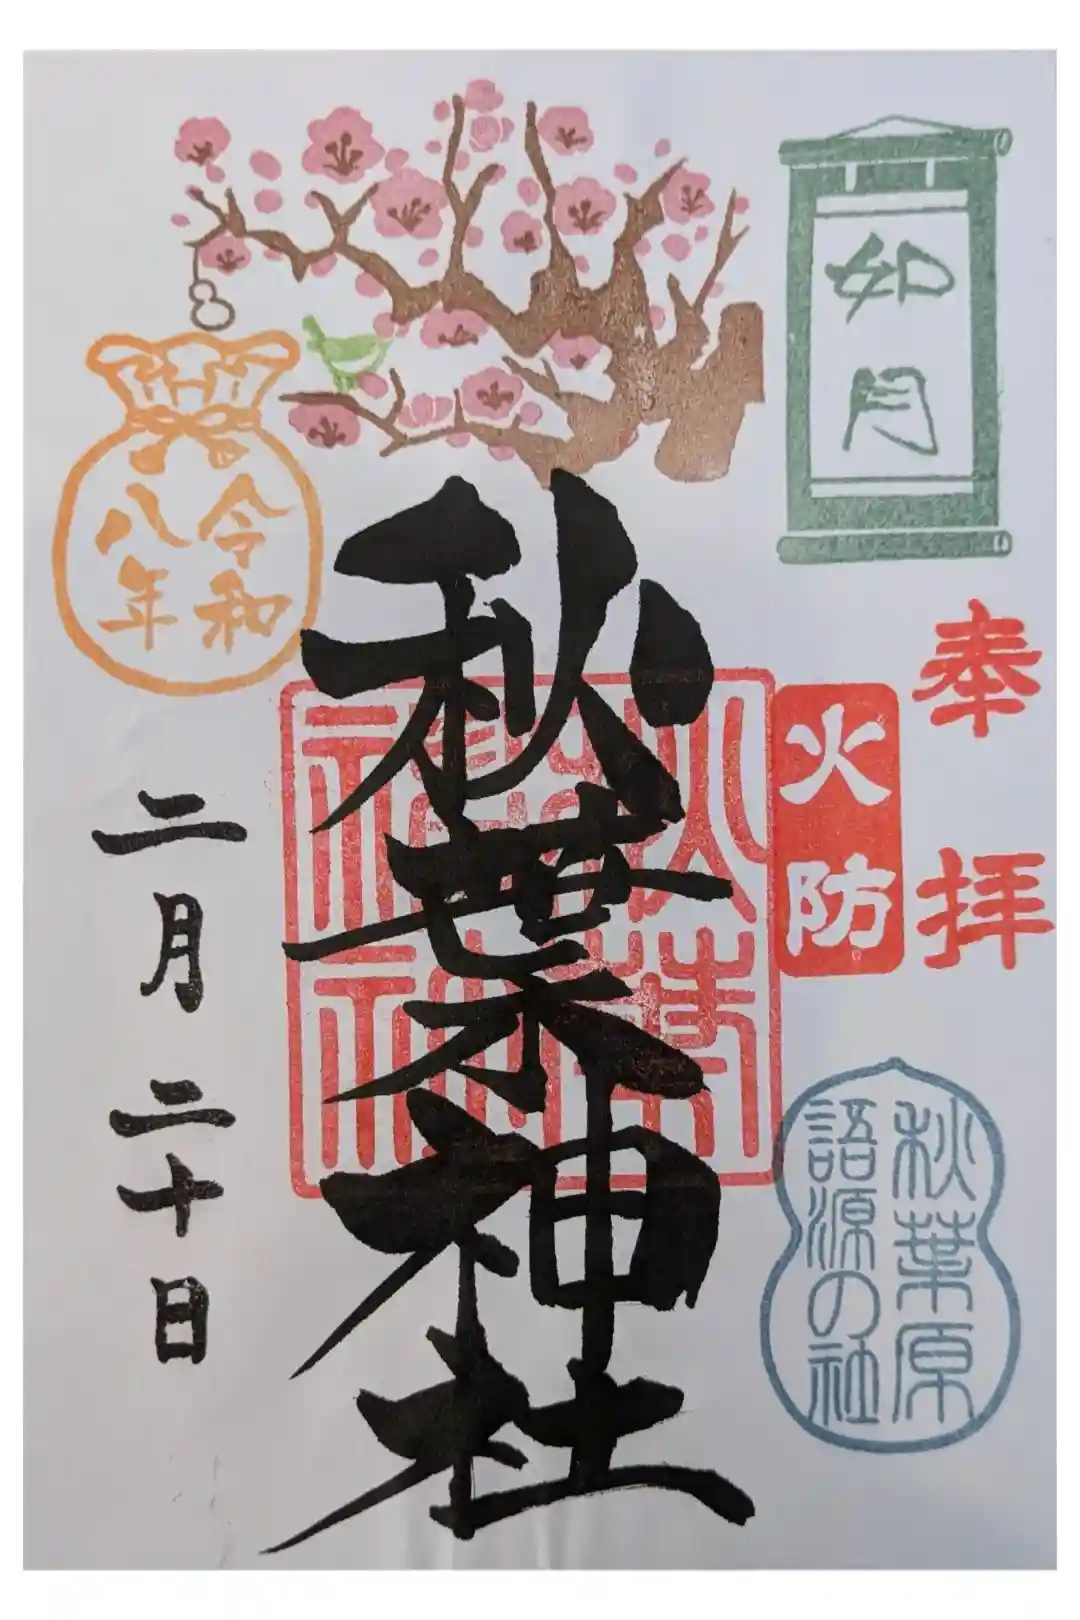 如月
奉拝
火防
秋葉原
語源の社
秋葉神社
秋葉
神社
令和
八年
二月二十日